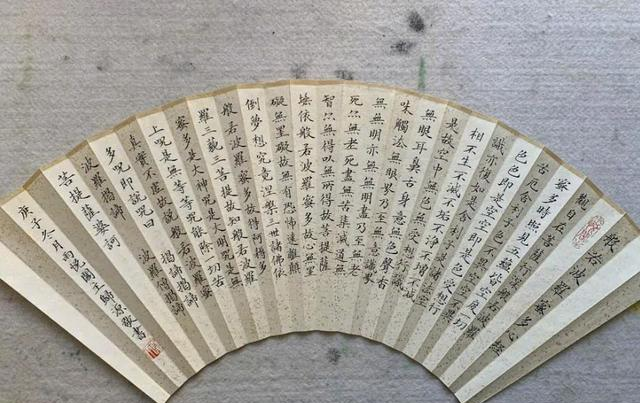 般若波羅蜜多心經
觀自在菩薩行深般若波羅
蜜多時照見五蘊皆空度一切
苦厄舍利子色不異空空不異
色色即是空空即是色受想行
識亦復如是舍利子是諸法空
相不生不滅不垢不淨不增不減
是故空中無色無受想行識
無眼耳鼻舌身意無色聲香
味觸法無眼界乃至無意識界
無無明亦無無明盡乃至無老
死亦無老死盡無苦集滅道無
智亦無得以無所得故菩提薩
埵依般若波羅蜜多故心無罣
礙無罣礙故無有恐怖遠離顛
倒夢想究竟涅槃三世諸佛依
般若波羅蜜多故得阿耨多
羅三藐三菩提故知般若波羅
蜜多是大神咒是大明咒是無
上咒是無等等咒能除一切苦
真實不虛故說般若波羅蜜
多咒即說咒曰 揭諦揭諦
波羅揭諦 波羅僧揭諦
菩提薩婆訶
庚子冬月雨悦閣主歸源敬書